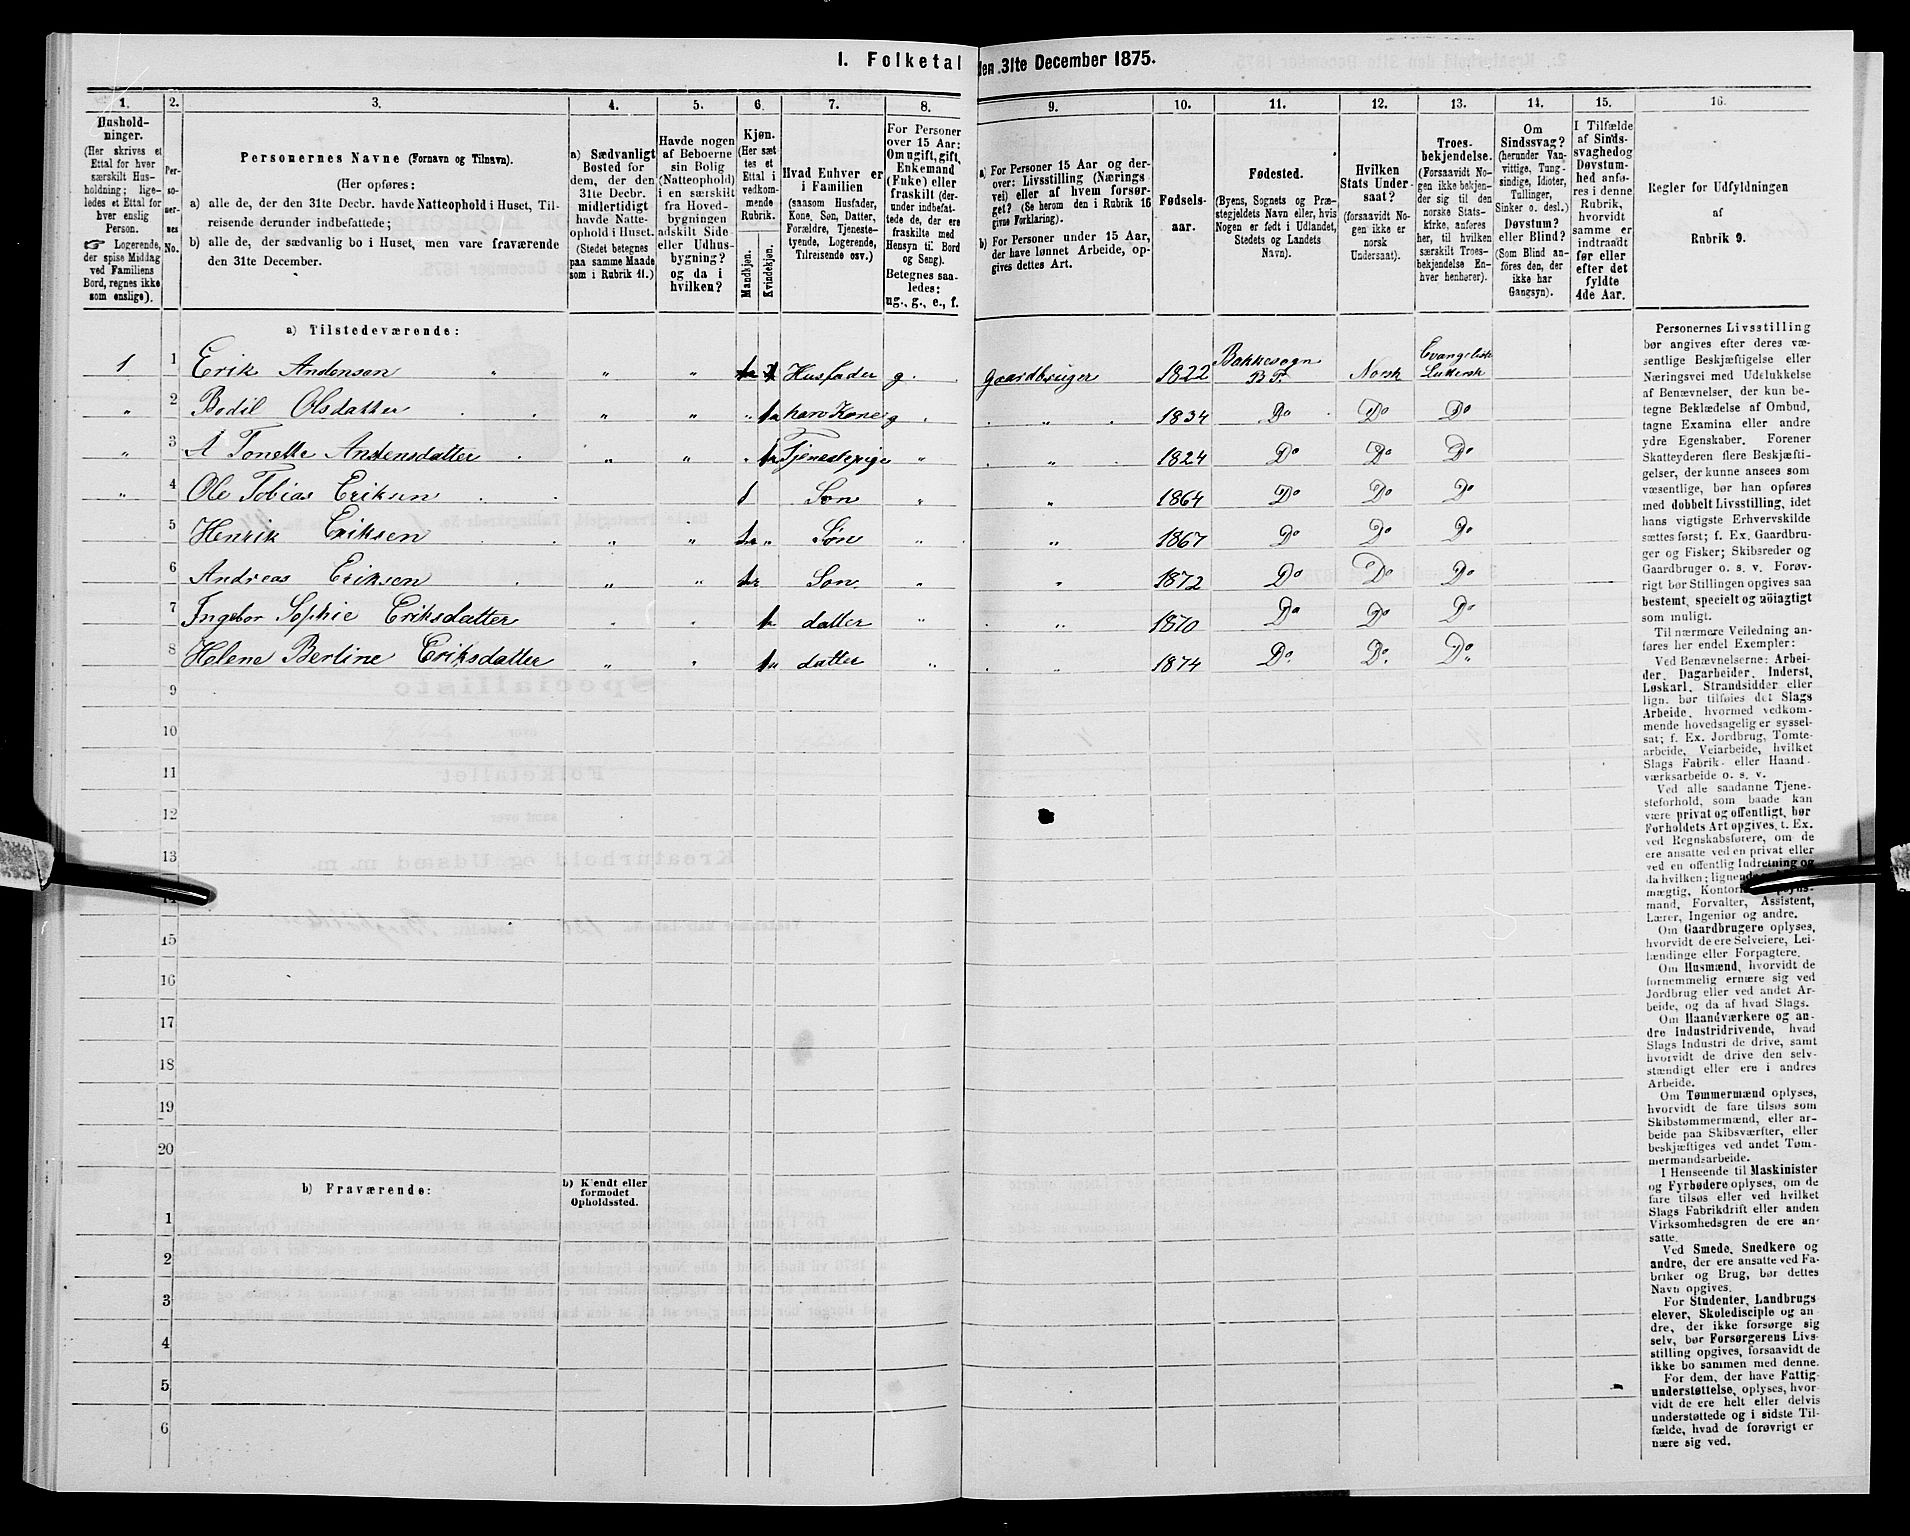 1. Folketal den 31te December 1875.
1. 2. 3. 4. 5. 6. 7. 8. 9. 10. 11. 12. 13. 14. 15. 16.
Husholdninger.
(Her skrives et
Ettal for hver
særskilt Husholdning;
ligeledes et Ettal for
hver enslig
Person.
☞ Logerende,
der spise Middag
ved Familiens
Bord, regnes ikke
som enslige).
Personernes No.
Personernes Navne (Fornavn og Tilnavn).
(Her opføres:
a) alle de, der den 31te Decbr. havde Natteophold i Huset, Tilreisende derunder indbefattede;
b) alle de, der sædvanlig bo i Huset, men vare fraværende
den 31te December.
a) Sædvanligt
Bosted for
dem, der den
31te Decbr.
midlertidigt
havde Natteophold i Huset.
(Stedet betegnes
paa samme Maade
som i Rubrik 11.)
Havde nogen
af Beboerne
sin Bolig
(Natteophold)
i en særskilt
fra Hovedbygningen
adskilt Side
eller Udhusbygning?
og da i
hvilken?
Kjøn.
(Her sættes et
Ettal i
vedkommende
Rubrik.
Mandkjøn.
Kvindekjøn.
Hvad Enhver er
i Familien
(saasom Husfader,
Kone, Søn, Datter,
Forældre, Tjenestetyende, Logerende,
Tilreisende osv.)
For Personer
over 15 Aar:
Om ugift, gift,
Enkemand
(Enke) eller
fraskilt (derunder indbefattede de, der ere
fraskilte med
Hensyn til Bord
og Seng).
Betegnes saaledes:
ug., g., e., f.
a) For Personer 15 Aar og derover: Livsstilling (Næringsvei) eller af hvem forsørget? (Se herom den i Rubrik 16
givne Forklaring).
b) For Personer under 15 Aar,
der have lønnet Arbeide, opgives dettes Art.
Fødselsaar.
Fødested.
(Byens, Sognets og Præstegjeldets Navn eller, hvis
Nogen er født i Udlandet,
Stedets og Landets
Navn).
Hvilken
Stats Undersaat?
(forsaavidt Nogen ikke er
norsk
Undersaat).
Troesbekjendelse.
(Forsaavidt Nogen ikke bekjender sig til den
norske Statskirke, anføres
her, til hvilken
særskilt Troesbekjendelse Enhver henhører).
Om
Sindssvag?
(herunder Vanvittige, Tungsindige, Idioter,
Tullinger,
Sinker o. desl.)
Døvstum?
eller Blind?
(Som Blind anføres den, der
ikke har
Gangsyn).
I Tilfælde
af Sindssvaghed og
Døvstumhed anføres i denne
Rubrik,
hvorvidt
samme er
indtraadt
før eller
efter det
fyldte
4de Aar.
Regler for Udfyldningen
af
Rubrik 9.
a) Tilstedeværende:
1 1 Erik Andersen " " " 1 Husfader g. Gaardbruger 1822 Bakkesogn B P. Norsk Evangelisk Luthersk
" 2 Bodil Olsdatter " " " 1 hans Kone g " 1834 Do Do Do
" 3 A Tonette Andersdatter " " " 1 Tjenestepige " " 1824 Do Do Do
" 4 Ole Tobias Eriksen 1 Søn " " 1864 Do Do Do
5 Henrik Eriksen " " 1 " Søn " " 1867 Do Do Do
6 Andreas Eriksen " " 1 Søn " " 1872 Do Do Do
7 Ingebor Sophie Eriksdatter " " 1 datter " " 1870 Do Do Do
8 Helene Berline Eriksdatter " " 1 datter " " 1874 Do. Do. Do
9
10
11
12
13
14
15
16
17
18
19
20
b) Fraværende:
b) Kjendt eller
formodet
Opholdssted.
1
2
3
4
5
6
Personernes Livsstilling
bør angives efter deres væsentlige Beskjæftigelse eller
Næringsvei med Udelukkelse
af Benævnelser, der kun betegne Beklædelse af Ombud,
tagne Examina eller andre
ydre Egenskaber. Forener
Skatteyderen flere Beskjæftigelser, der kunne ansees som
væsentlige, bør han opføres
med dobbelt Livsstilling, idet
hans vigtigste Erhvervskilde
sættes først; f. Ex. Gaardbruger og Fisker; Skibsreder og
Gaardbruger o. s. v. Forøvrigt bør Stillingen opgives saa
bestemt, specielt og nöiagtigt
som muligt.
Til nærmere Veiledning anføres her endel Exempler:
Ved Benævnelserne: Arbeider, Dagarbeider, Inderst,
Løskarl, Strandsidder eller
lign. bør tilføies det Slags
Arbeide, hvormed vedkommende hovedsagelig er sysselsat; f. Ex. Jordbrug, Tomtearbeide, Veiarbeide, hvilket
Slags Fabrik- eller Haandværksarbeide o. s. v.
Ved alle saadanne Tjenesteforhold, som baade kan
være privat og offentligt, bør
Forholdets Art opgives, t. Ex.
ved Regnskabsførere, om de
ere ansatte ved en privat eller
ved en offentlig Indretning og
da hvilken; lignende
mægtig,
mand, Forvalter, Assistent,
Lærer, Ingeniør og andre.
Om Gaardbrugere oplyses,
hvorvidt de ere Selveiere, Leilændinge eller Forpagtere.
Om Husmænd, hvorvidt de
fornemmelig ernære sig ved
Jordbrug eller ved andet Arbeide, og da af hvad Slags.
Om Haandværkere og andre Industridrivende, hvad
Slags Industri de drive, samt
hvorvidt de drive den selvstændigt eller ere i andres
Arbeide.
Om Tømmermænd oplyses,
hvorvidt de fare tilsøs som
Skibstømmermænd, eller arbeide paa Skibsværfter, eller
beskjæftiges ved andet Tømmermandsarbeide.
I Henseende til Maskinister
og Fyrbødere oplyses, om de
fare tilsøs eller ved hvilket
Slags Fabrikdrift eller anden
Virksomhedsgren de ere ansatte.
Ved Smede, Snedkere og
andre, der ere ansatte ved Fabriker og Brug, bør dettes
Navn opgives.
For Studenter, Landbrugselever, Skoledisciple og andre, der ikke forsørge sig
selv, bør Forsørgerens Livsstilling opgives, forsaavidt de
ikke bo sammen med denne.
For dem, der have Fattigunderstøttelse, oplyses, hvorvidt de ere helt eller delvis
understøttede og i sidste Tilfælde, hvad de forøvrigt ernære sig ved.